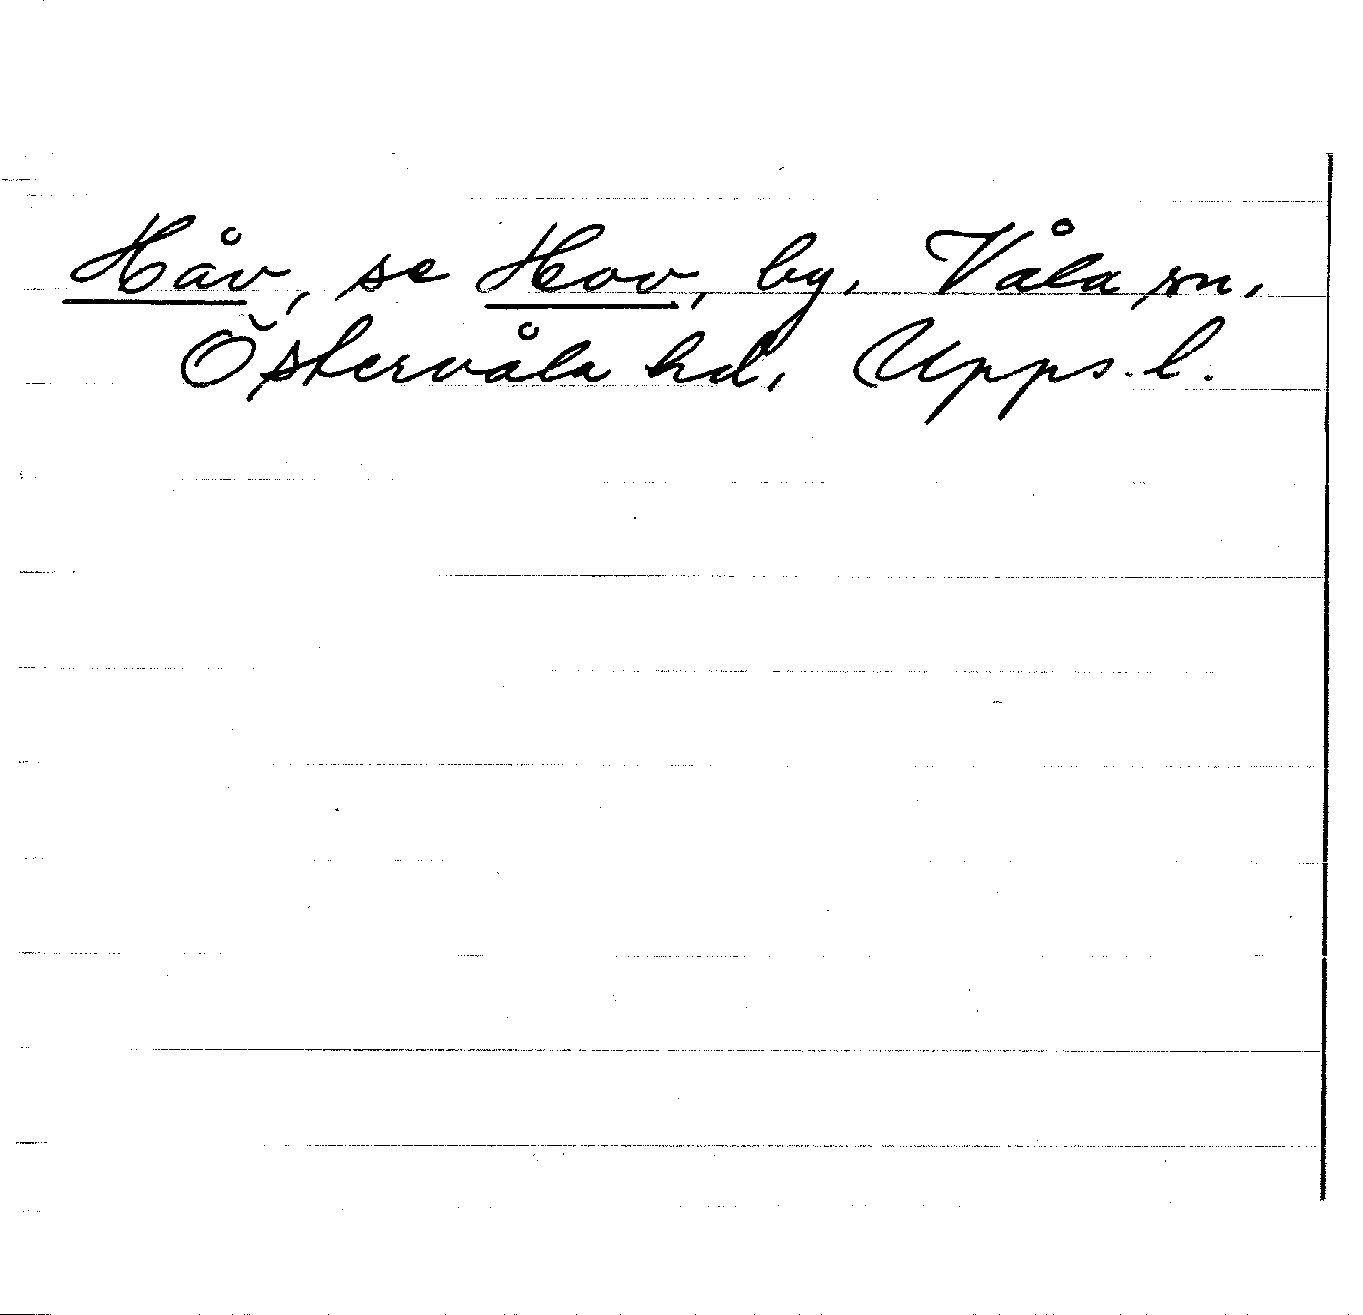 Håv, se Hov, by, Våla sn,
Östervåla hd, Upps. l.